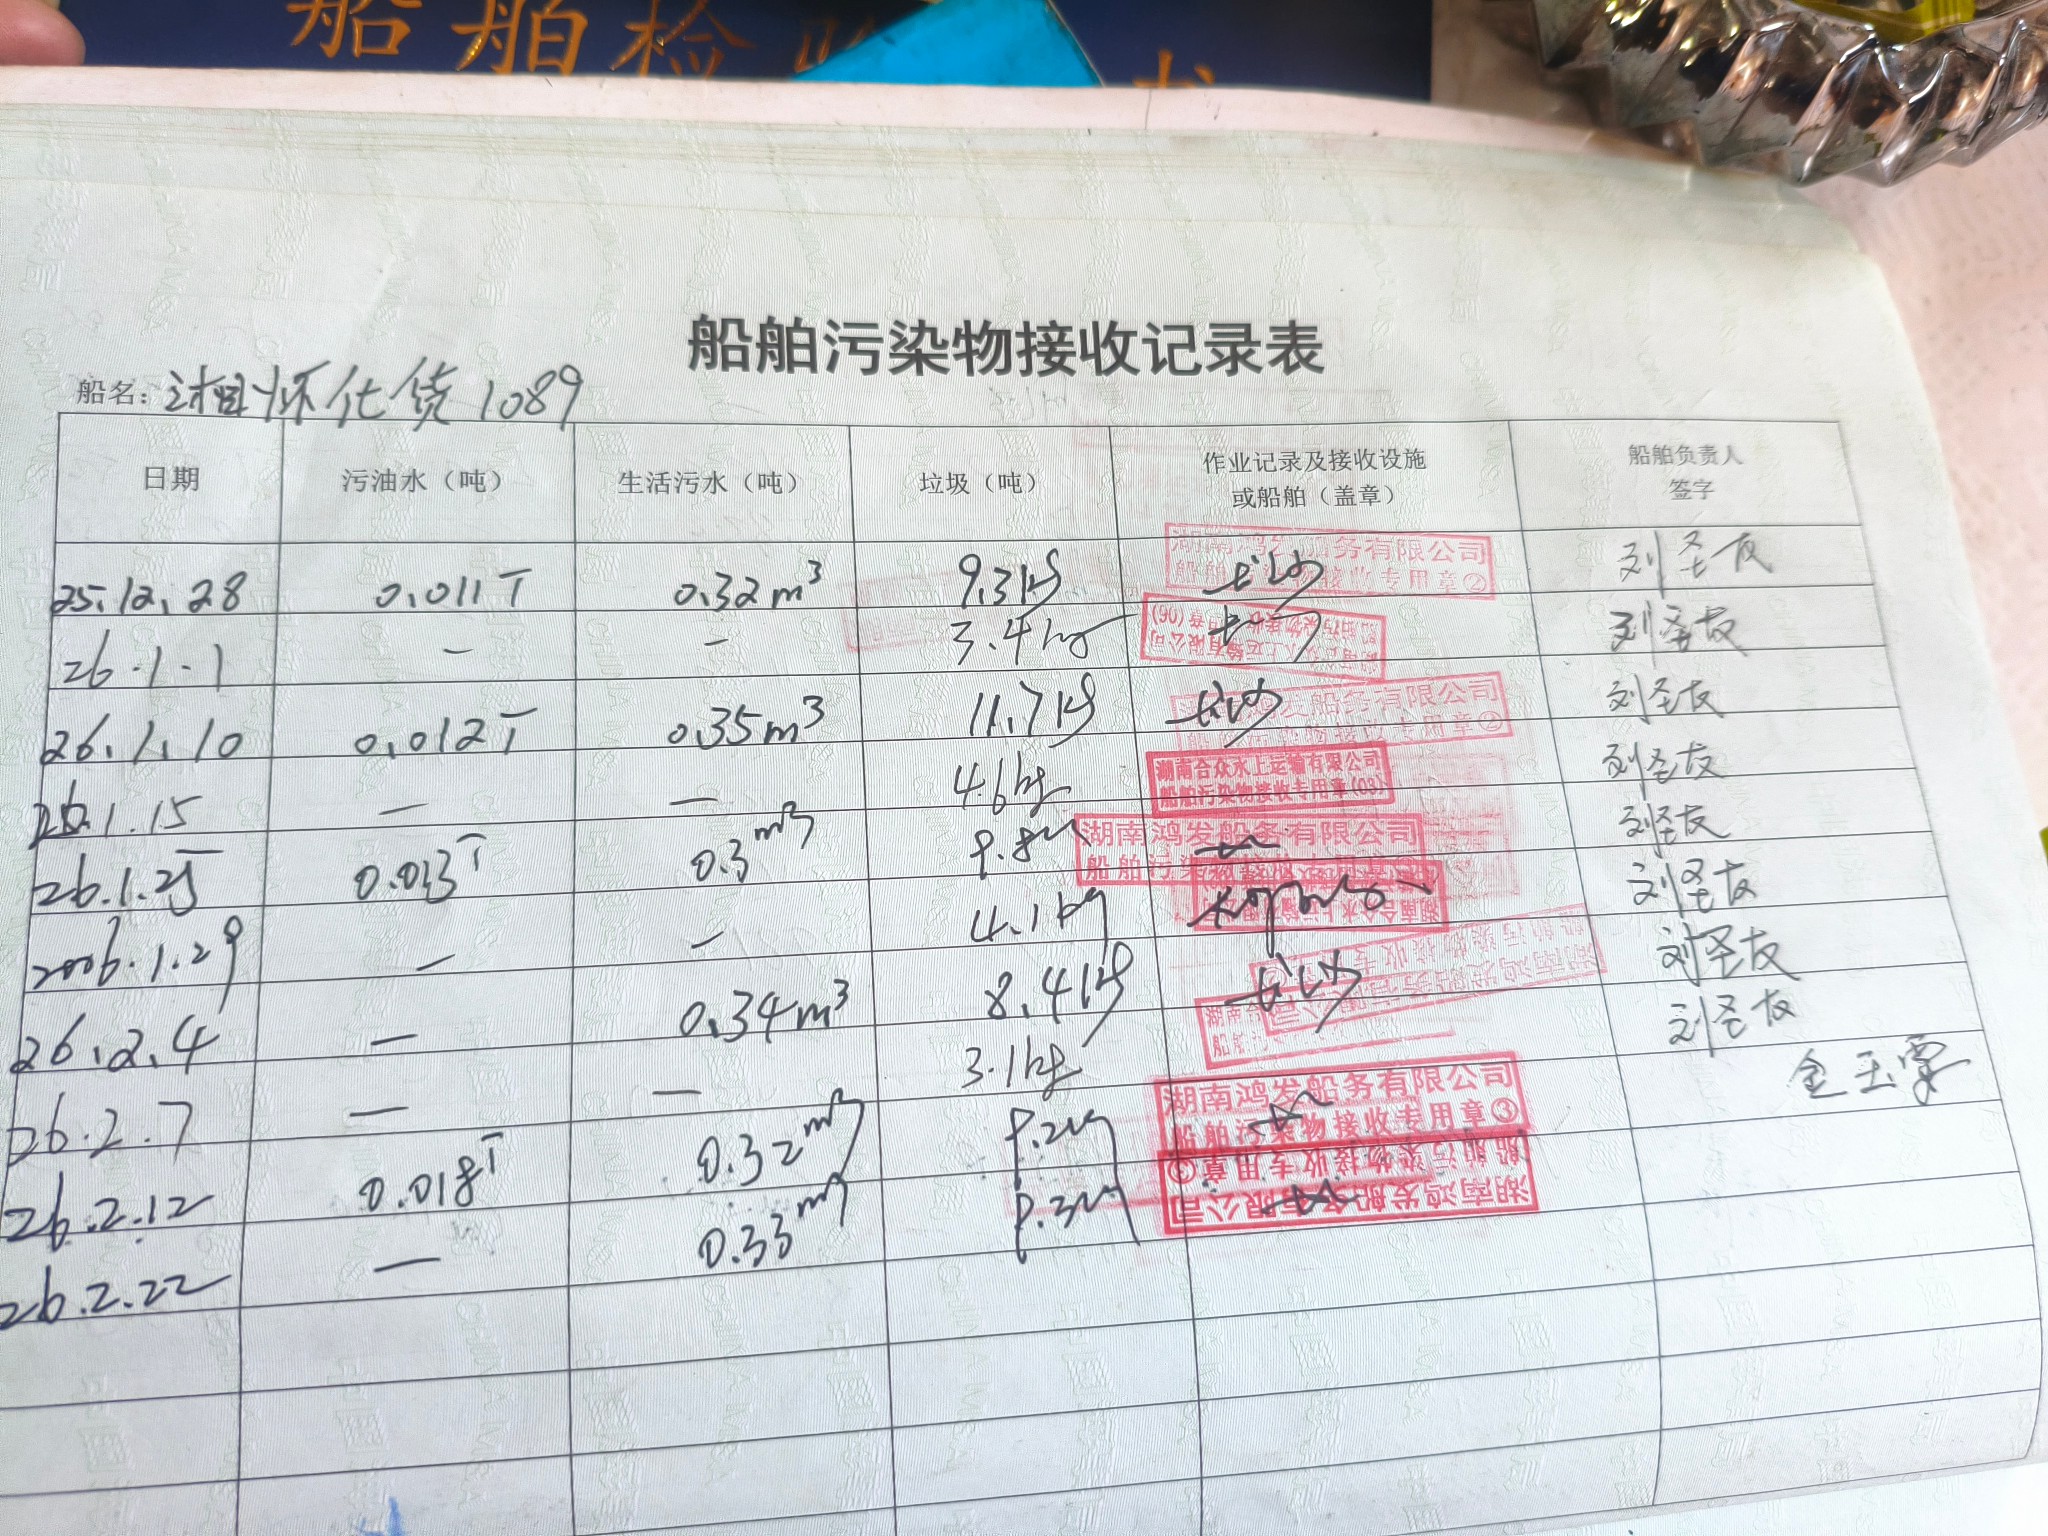 船舶检
船舶污染物接收记录表
船名: 湘怀化货1089
日期 污油水（吨） 生活污水（吨） 垃圾（吨） 作业记录及接收设施或船舶（盖章） 船舶负责人签字
25.12.28 0.011T 0.32m³ 9.3kg 长沙 湖南鸿发船务有限公司 船舶污染物接收专用章② 刘圣友
26.1.1 — — 3.4kg 刘圣友
26.1.10 0.012T 0.35m³ 11.7kg 长沙 发船务有限公司 接收专用章② 刘圣友
26.1.15 — — 4.6kg 湖南合众水上运输有限公司 船舶污染物接收专用章(03) 刘圣友
26.1.25 0.013T 0.3m³ 8.8kg 湖南鸿发船务有限公司 船舶污染物接收专用章 刘圣友
2006.1.29 — — 4.1kg 刘圣友
26.2.4 — 0.34m³ 8.4kg 长沙 湖南鸿发船务有限公司 刘圣友
26.2.7 — — 3.1kg 刘圣友
26.2.12 0.018T 0.32m³ 8.2kg 湖南鸿发船务有限公司 船舶污染物接收专用章③
26.2.22 — 0.33m³ 8.3kg 湖南鸿发船务有限公司 船舶污染物接收专用章①